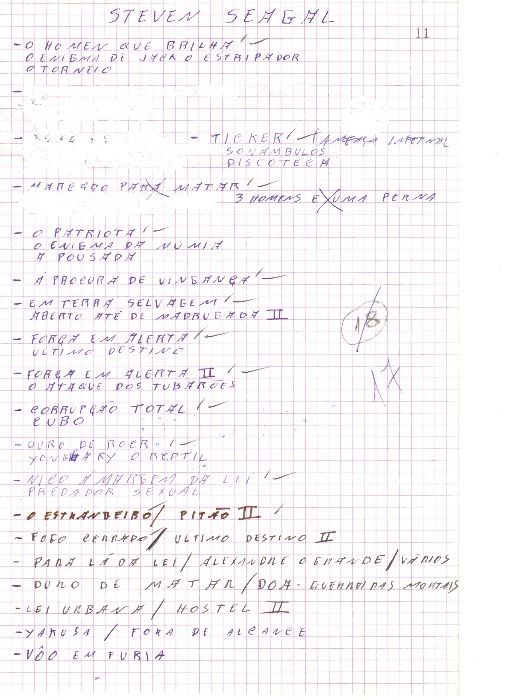 STEVEN SEAGAL
11
- O HOMEN QUE BRILHA
O ENIGMA DE JACK O ESTRIPADOR
O TORNEIO
-
- TICKER / AMEAÇA INFERNAL
SONAMBULOS
DISCOTECA
- MARCADO PARA MATAR
3 HOMENS E UMA PERNA
- O PATRIOTA
O ENIGMA DA NÚMIA
A POUSADA
- A PROCURA DE VINGANÇA
- EM TERRA SELVAGEM
ABERTO ATÉ DE MADRUGADA II
18
- FORÇA EM ALERTA
ULTIMO DESTINO
- FORÇA EM ALERTA II
O ATAQUE DOS TUBARÕES
- CORRUPÇÃO TOTAL
CUBO
- DURO DE ROER
YONGARY O REPTIL
- NICO A MARGEM DA LEI
PREDADOR SEXUAL
- O ESTRANGEIRO / PITÃO II
- FOGO CERRADO / ULTIMO DESTINO II
- PARA LÁ DA LEI / ALEXANDRE O GRANDE / VÁRIOS
- DURO DE MATAR / DOA - GUERREIRAS MORTAIS
- LEI URBANA / HOSTEL II
- YAKUSA / FORA DE ALCANCE
- VÔO EM FURIA